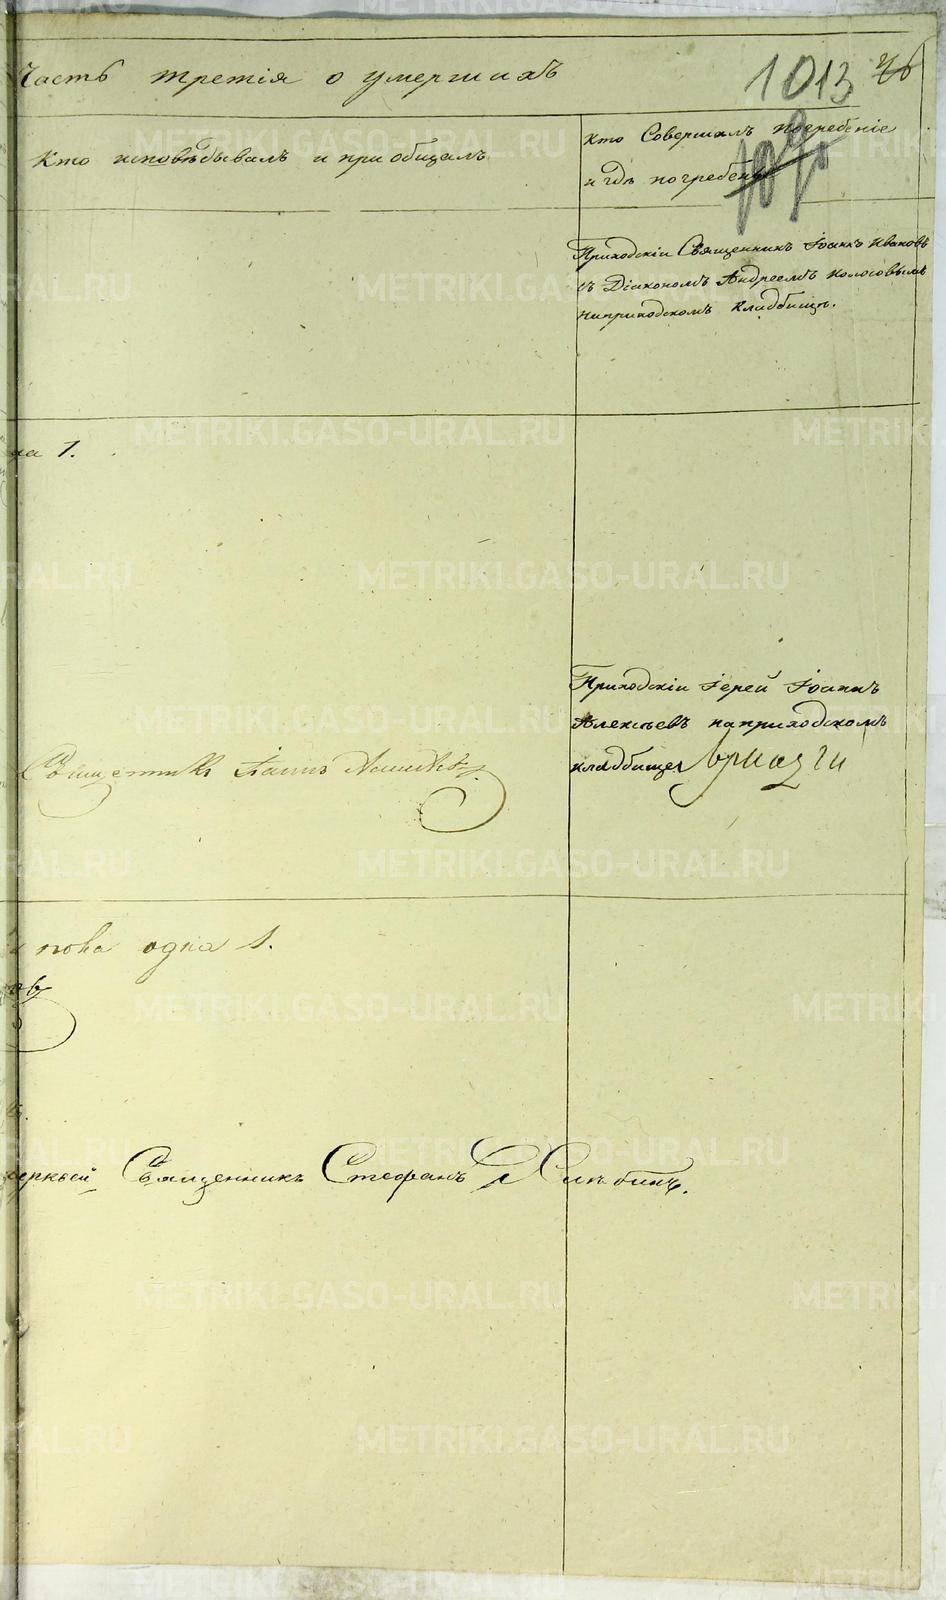 Часть третія о умершихъ
1013 76
Кто исповѣдывалъ и приобщалъ
Кто Совершалъ погребеніе
и гдѣ погребены
Приходскіи Священникъ Іоаннъ Ивановъ
съ Діакономъ Андреемъ Колосовымъ
наприходскомъ кладбищѣ.
на 1.
Приходскіи Іерей Іоаннъ
Алексѣевъ наприходскомъ
кладбище
Священникъ Іоаннъ
пова одна 1.
церквей Священникъ Стефанъ
METRIKI.GASO-URAL.RU